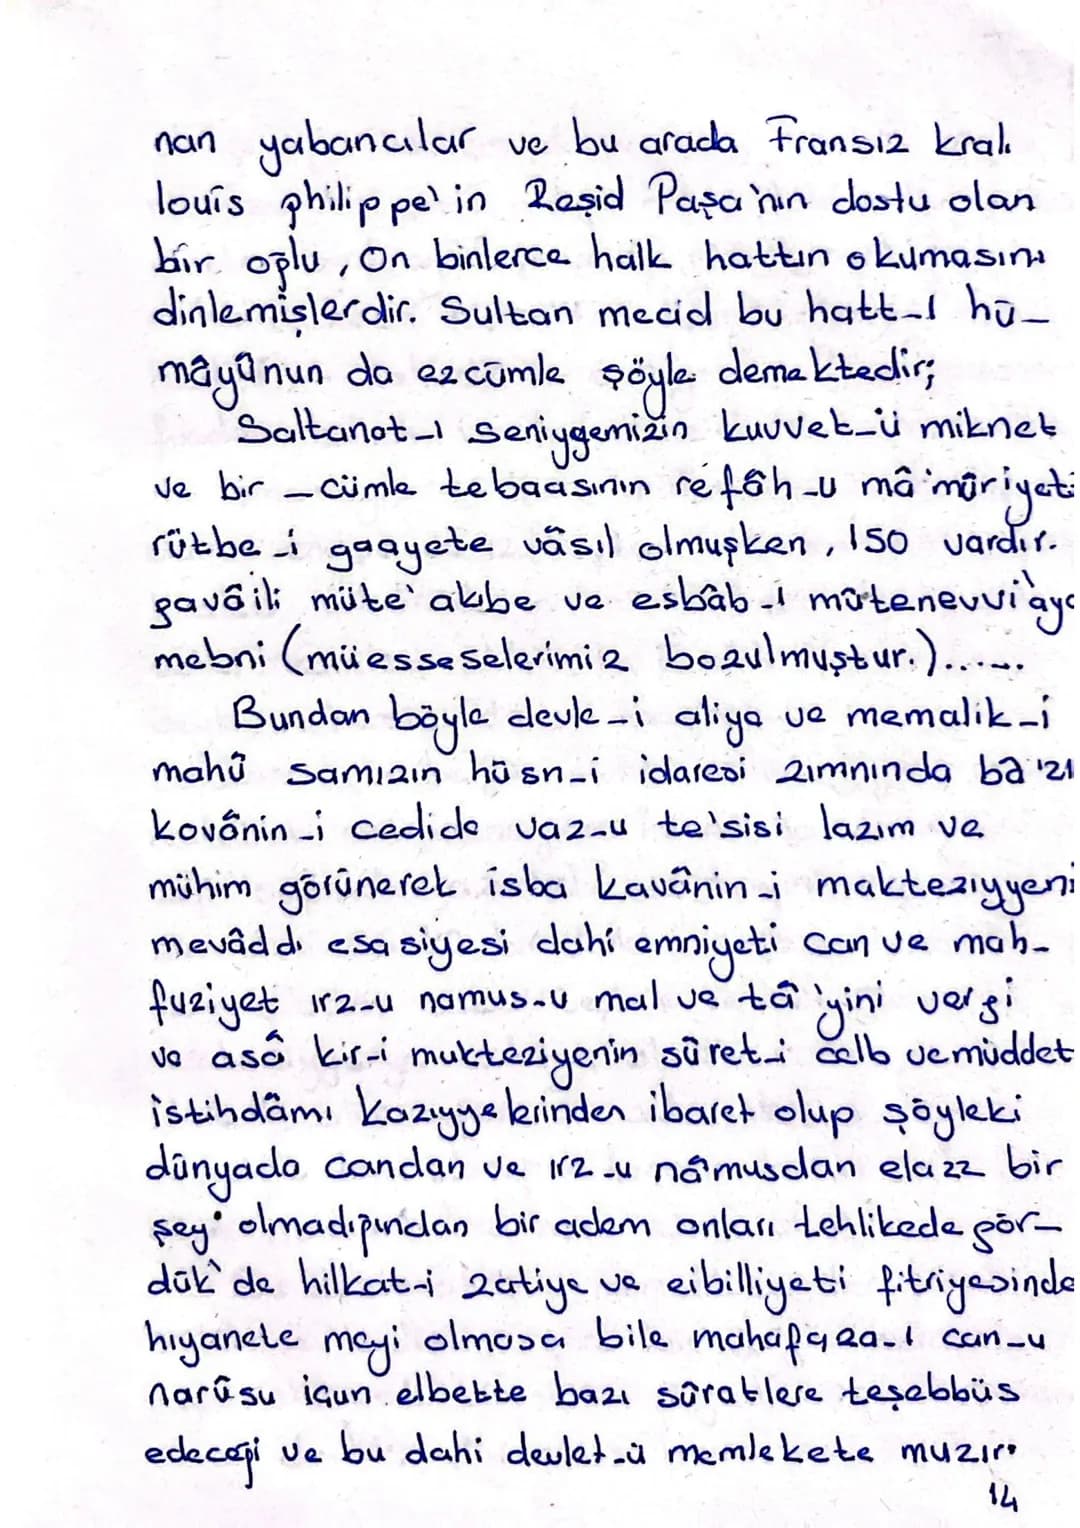 nan yabancılar ve bu arada Fransız kralı
louis philippe'in Reşid Paşa'nın dostu olan
bir oğlu, On binlerce halk hattın okumasını
dinlemişlerdir. Sultan mecid bu hatt-ı hü-
mâyûnun da ezcümle şöyle demektedir;
Saltanat-ı seniyyemizin kuvvet-ü miknet
ve bir-cümle tebaasının refâh-u mâ'mûriyeti
rütbe-i gaayete vâsıl olmuşken, 150 vardır.
gavâili müte'akibe ve esbâb-ı mütenevvi'aya
mebni (müesseselerimiz bozulmuştur.)......
Bundan böyle devle-i aliye ve memalik-i
mahû samızın hüsn-i idaresi zımnında ba'zı
kovânin-i cedide vaz-u te'sisi lazım ve
mühim görünerek isba kavânin-i makteziyyeni
mevâddı esasiyesi dahi emniyeti can ve mah-
fuziyet ırz-u namus-u mal ve tâ'yini vergi
ve asâ kir-i mukteziyenin sûret-i celb ve müddet
istihdâmı kazıyyelerinden ibaret olup şöyleki
dünyada candan ve ırz-u nâmusdan elazz bir
şey' olmadığından bir adem onları tehlikede gör-
dük'de hilkat-i zatiye ve cibilliyeti fitriyesinde
hıyanete meyi olmasa bile mahafaza-ı can-u
narûsu içun elbette bazı sûratlere teşebbüs
edeceği ve bu dahi devlet-ü memlekete muzır
14